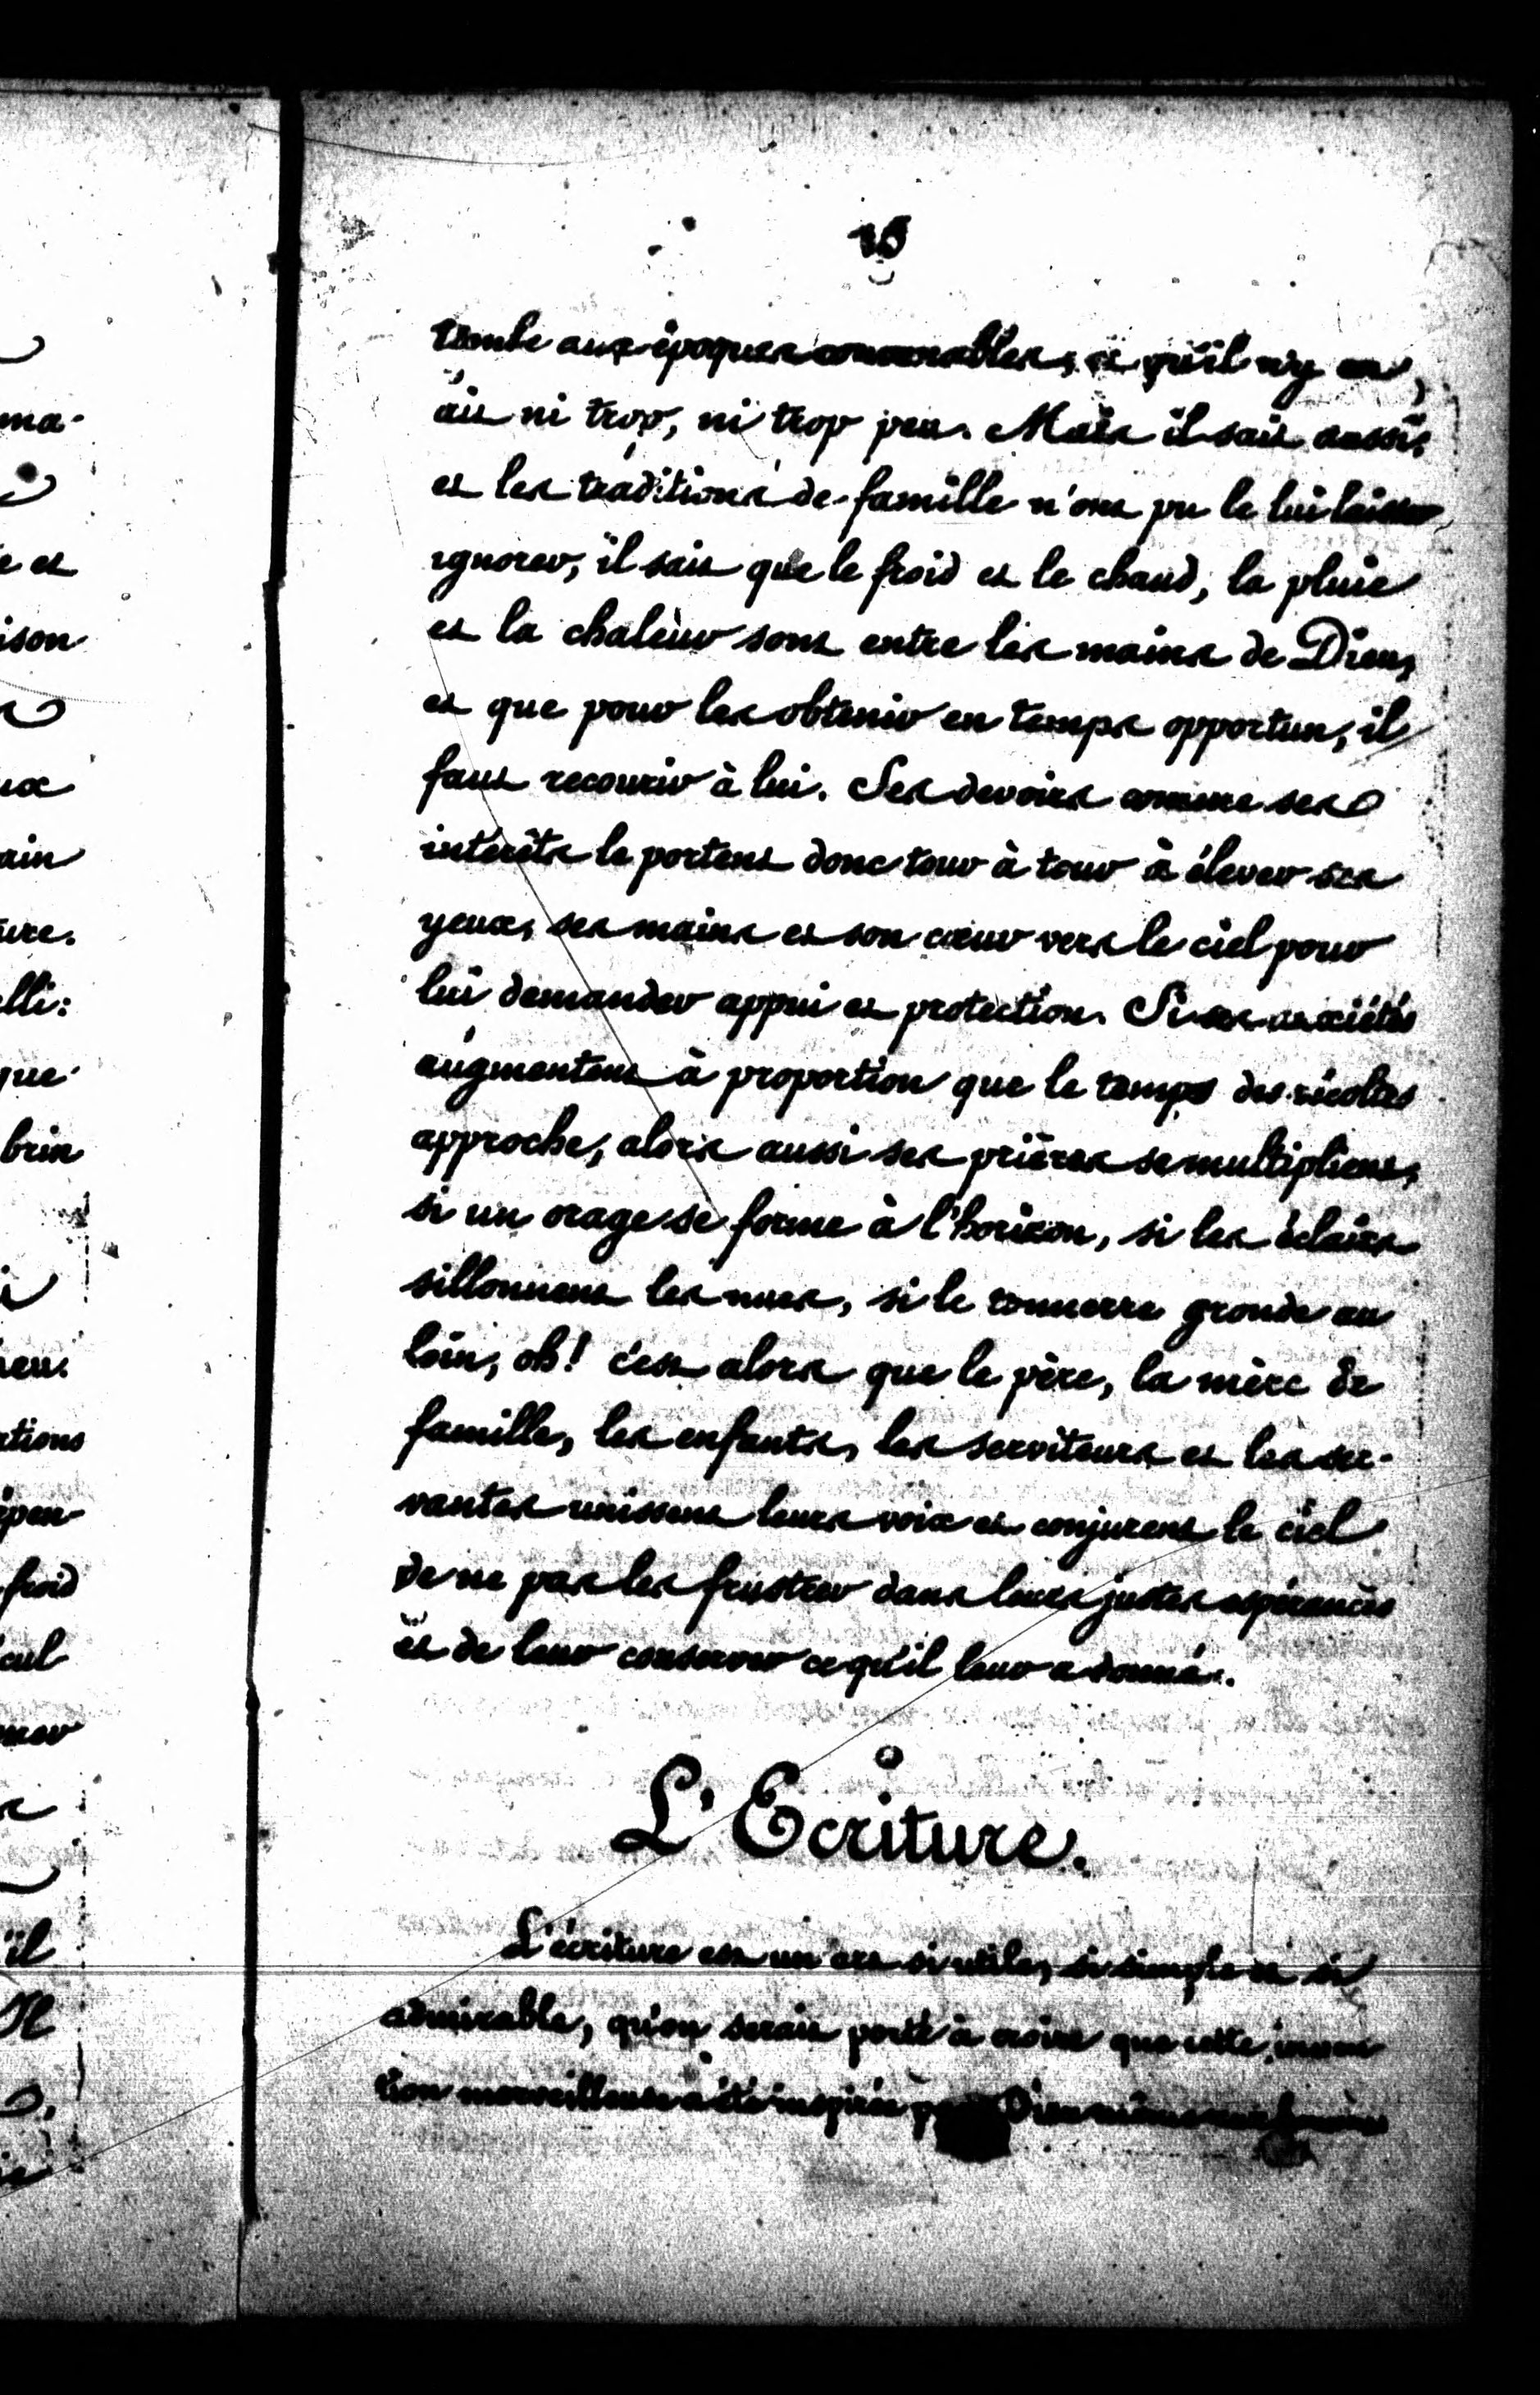 15
tombe aux époques convenables, et qu'il n'y en
ait ni trop, ni trop peu. Mais il sait aussi,
et les traditions de famille n'ont pu le lui laisser
ignorer, il sait que le froid et le chaud, la pluie
et la chaleur sont entre les mains de Dieu,
et que pour les obtenir en temps opportun, il
faut recourir à lui. Ses devoirs comme ses
intérêts le portent donc tour à tour à élever ses
yeux, ses mains et son cœur vers le ciel pour
lui demander appui et protection. Si ses anxiétés
augmentent à proportion que le temps des récoltes
approche, alors aussi ses prières se multiplient,
si un orage se forme à l'horizon, si les éclairs
sillonnent les nues, si le tonnerre gronde au
loin, oh! c'est alors que le père, la mère de
famille, les enfants, les serviteurs et les ser-
vantes unissent leurs voix et conjurent le ciel
de ne pas les frustrer dans leurs justes espérances
et de leur conserver ce qu'il leur a donné.
L'Ecriture.
L'écriture est un art si utile, si simple et si
admirable, qu'on serait porté à croire que cette inven
tion merveilleuse a été inspirée par Dieu même aux